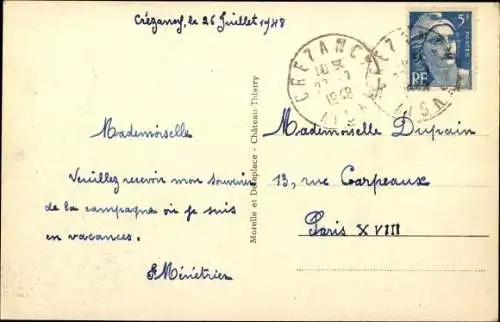 Crézancy, le 26 Juillet 1948
5F
POSTES
RF
CREZANCY
AISNE
10 30
27 -7
1948
Mademoiselle
Veuillez recevoir mon souvenir
de la campagne où je suis
en vacances.
S. Ménétrier
Morelle et Delaplace - Château-Thierry
Mademoiselle Dupain
13, rue Carpeaux
Paris XVIII